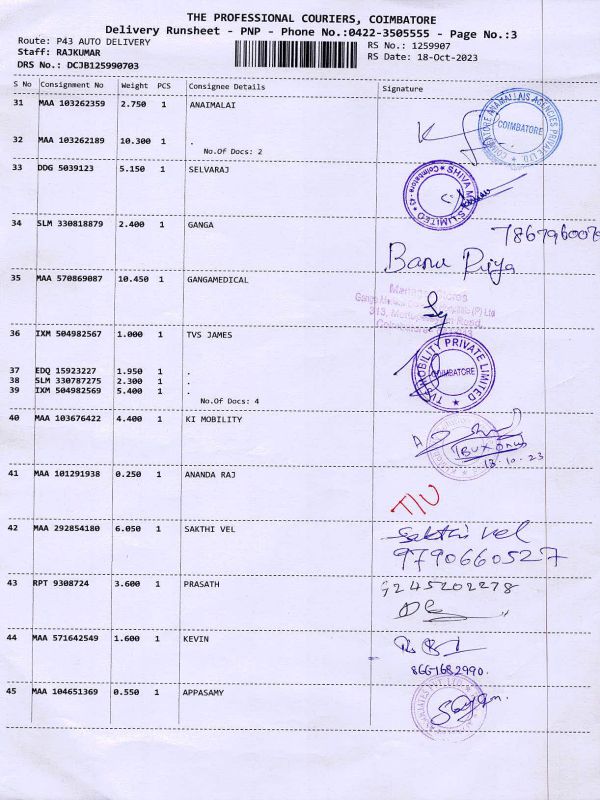 THE PROFESSIONAL COURIERS, COIMBATORE
Delivery Runsheet - PNP - Phone No.:0422-3505555 - Page No.:3
Route: P43 AUTO DELIVERY
RS No.: 1259907
Staff: RAJKUMAR
RS Date: 18-Oct-2023
DRS No.: DCJB125990703
S No Consignment No Weight PCS Consignee Details Signature
31 MAA 103262359 2.750 1 ANAIMALAI
COIMBATORE
32 MAA 103262189 10.300 1 .
No.Of Docs: 2
33 DDG 5039123 5.150 1 SELVARAJ
34 SLM 330818879 2.400 1 GANGA
Banu Priya
35 MAA 570869087 10.450 1 GANGAMEDICAL
36 IXM 504982567 1.000 1 TVS JAMES
TVS MOBILITY PRIVATE LIMITED
COIMBATORE
37 EDQ 15923227 1.950 1 .
38 SLM 330787275 2.300 1 .
39 IXM 504982569 5.400 1 .
No.Of Docs: 4
40 MAA 103676422 4.400 1 KI MOBILITY
41 MAA 101291938 0.250 1 ANANDA RAJ
42 MAA 292854180 6.050 1 SAKTHI VEL
Sakthi Vel
9790660527
43 RPT 9308724 3.600 1 PRASATH
44 MAA 571642549 1.600 1 KEVIN
8661682990.
45 MAA 104651369 0.550 1 APPASAMY